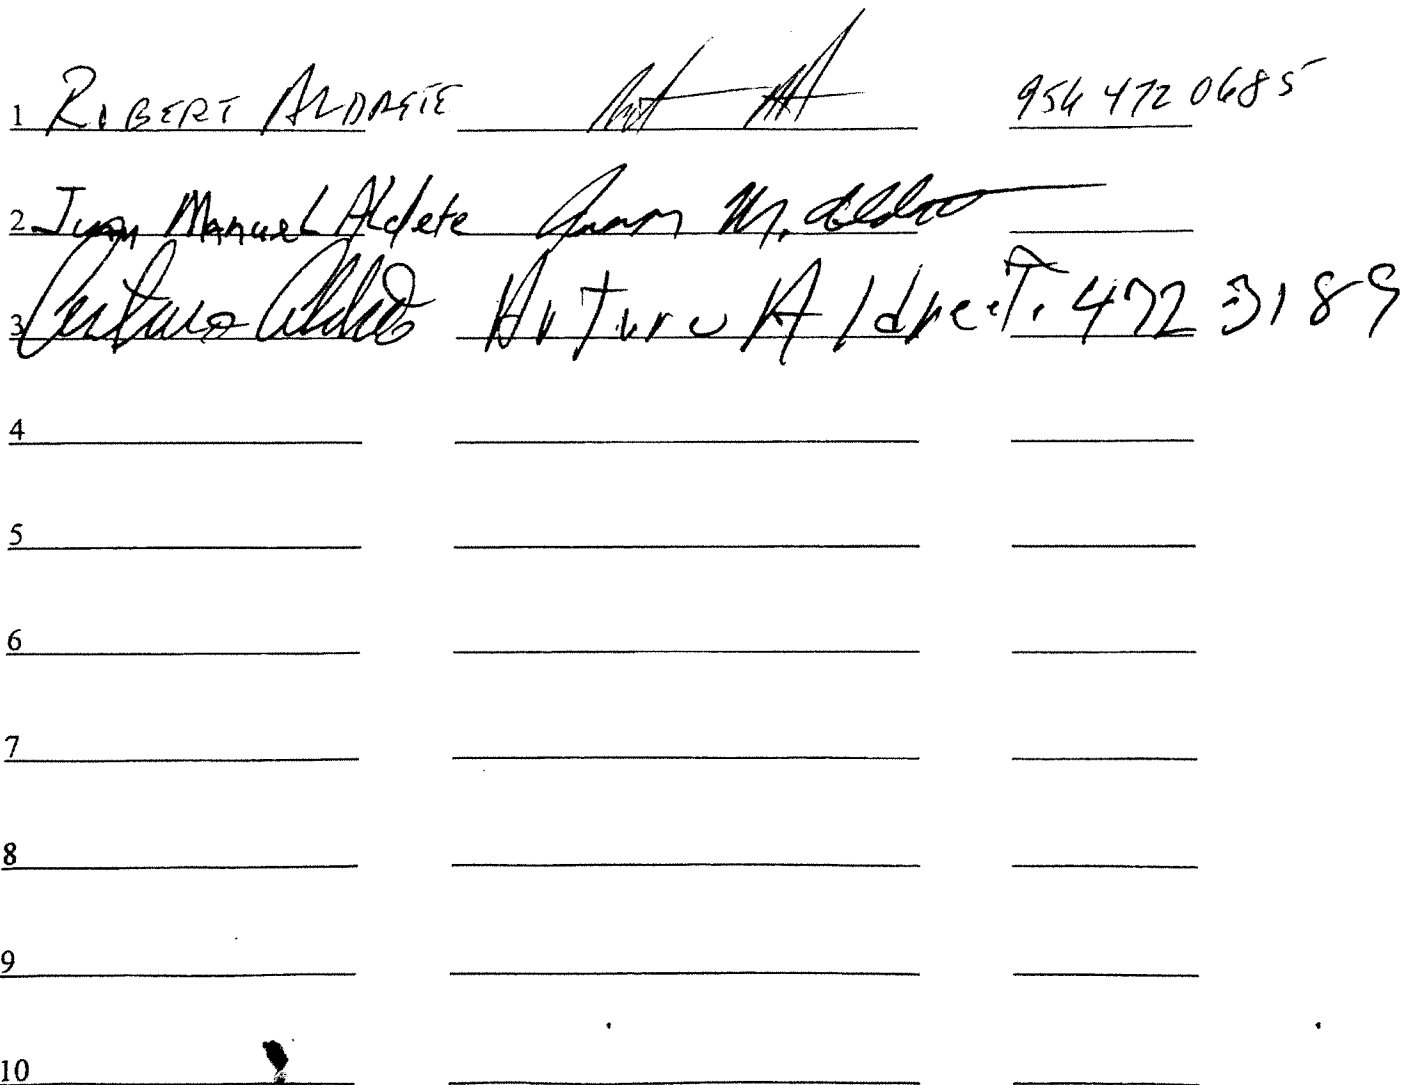 1 ROBERT ALDRETE 956 472 0685
2 Juan Manuel Aldete Juan M. Aldrete
3 Arturo Aldrete Arturo Aldreet. 472 3189
4
5
6
7
8
9
10